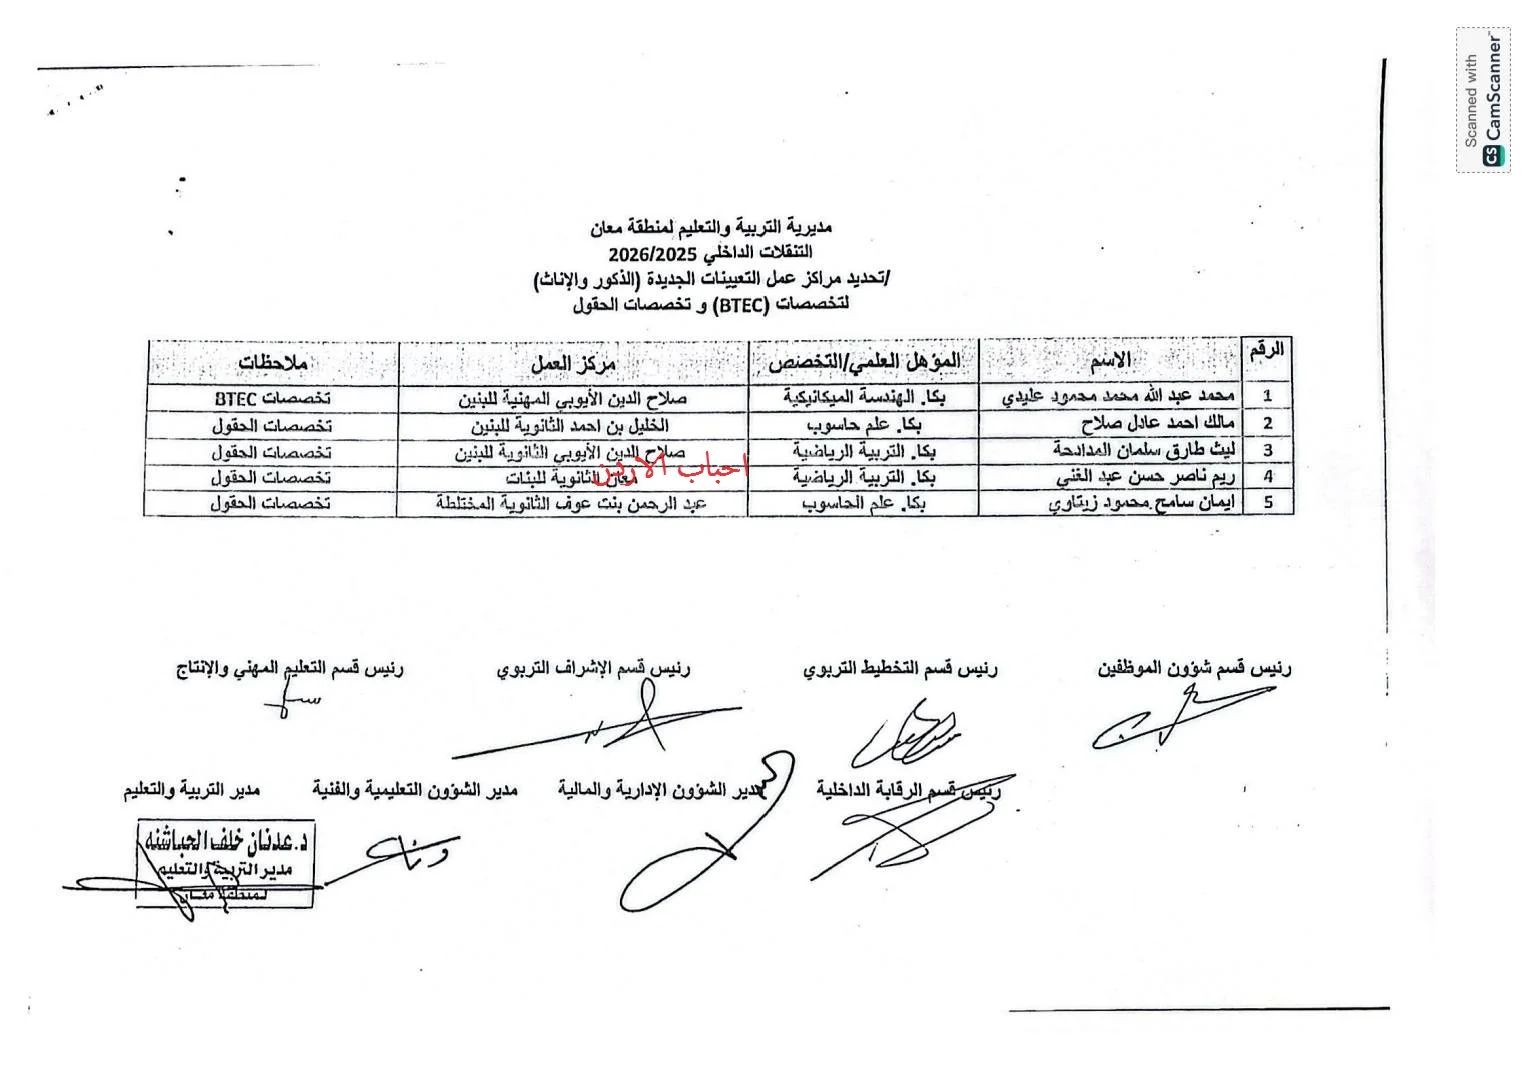 Scanned with
CS CamScanner
مديرية التربية والتعليم لمنطقة معان
التنقلات الداخلي 2026/2025
/تحديد مراكز عمل التعيينات الجديدة (الذكور والإناث)
لتخصصات (BTEC) و تخصصات الحقول
الرقم الاسم المؤهل العلمي/التخصص مركز العمل ملاحظات
1 محمد عبد الله محمد محمود عليدي بكا. الهندسة الميكانيكية صلاح الدين الأيوبي المهنية للبنين تخصصات BTEC
2 مالك احمد عادل صلاح بكا. علم حاسوب الخليل بن احمد الثانوية للبنين تخصصات الحقول
3 ليث طارق سلمان المدادحة بكا. التربية الرياضية صلاح الدين الأيوبي الثانوية للبنين تخصصات الحقول
احباب الاردن
4 ريم ناصر حسن عبد الغني بكا. التربية الرياضية معان الثانوية للبنات تخصصات الحقول
5 ايمان سامح محمود زيتاوي بكا. علم الحاسوب عبد الرحمن بنت عوف الثانوية المختلطة تخصصات الحقول
رئيس قسم شؤون الموظفين رئيس قسم التخطيط التربوي رئيس قسم الإشراف التربوي رئيس قسم التعليم المهني والإنتاج
رئيس قسم الرقابة الداخلية مدير الشؤون الإدارية والمالية مدير الشؤون التعليمية والفنية مدير التربية والتعليم
د.عدنان خلف الحباشنه
مدير التربية والتعليم
لمنطقة معان